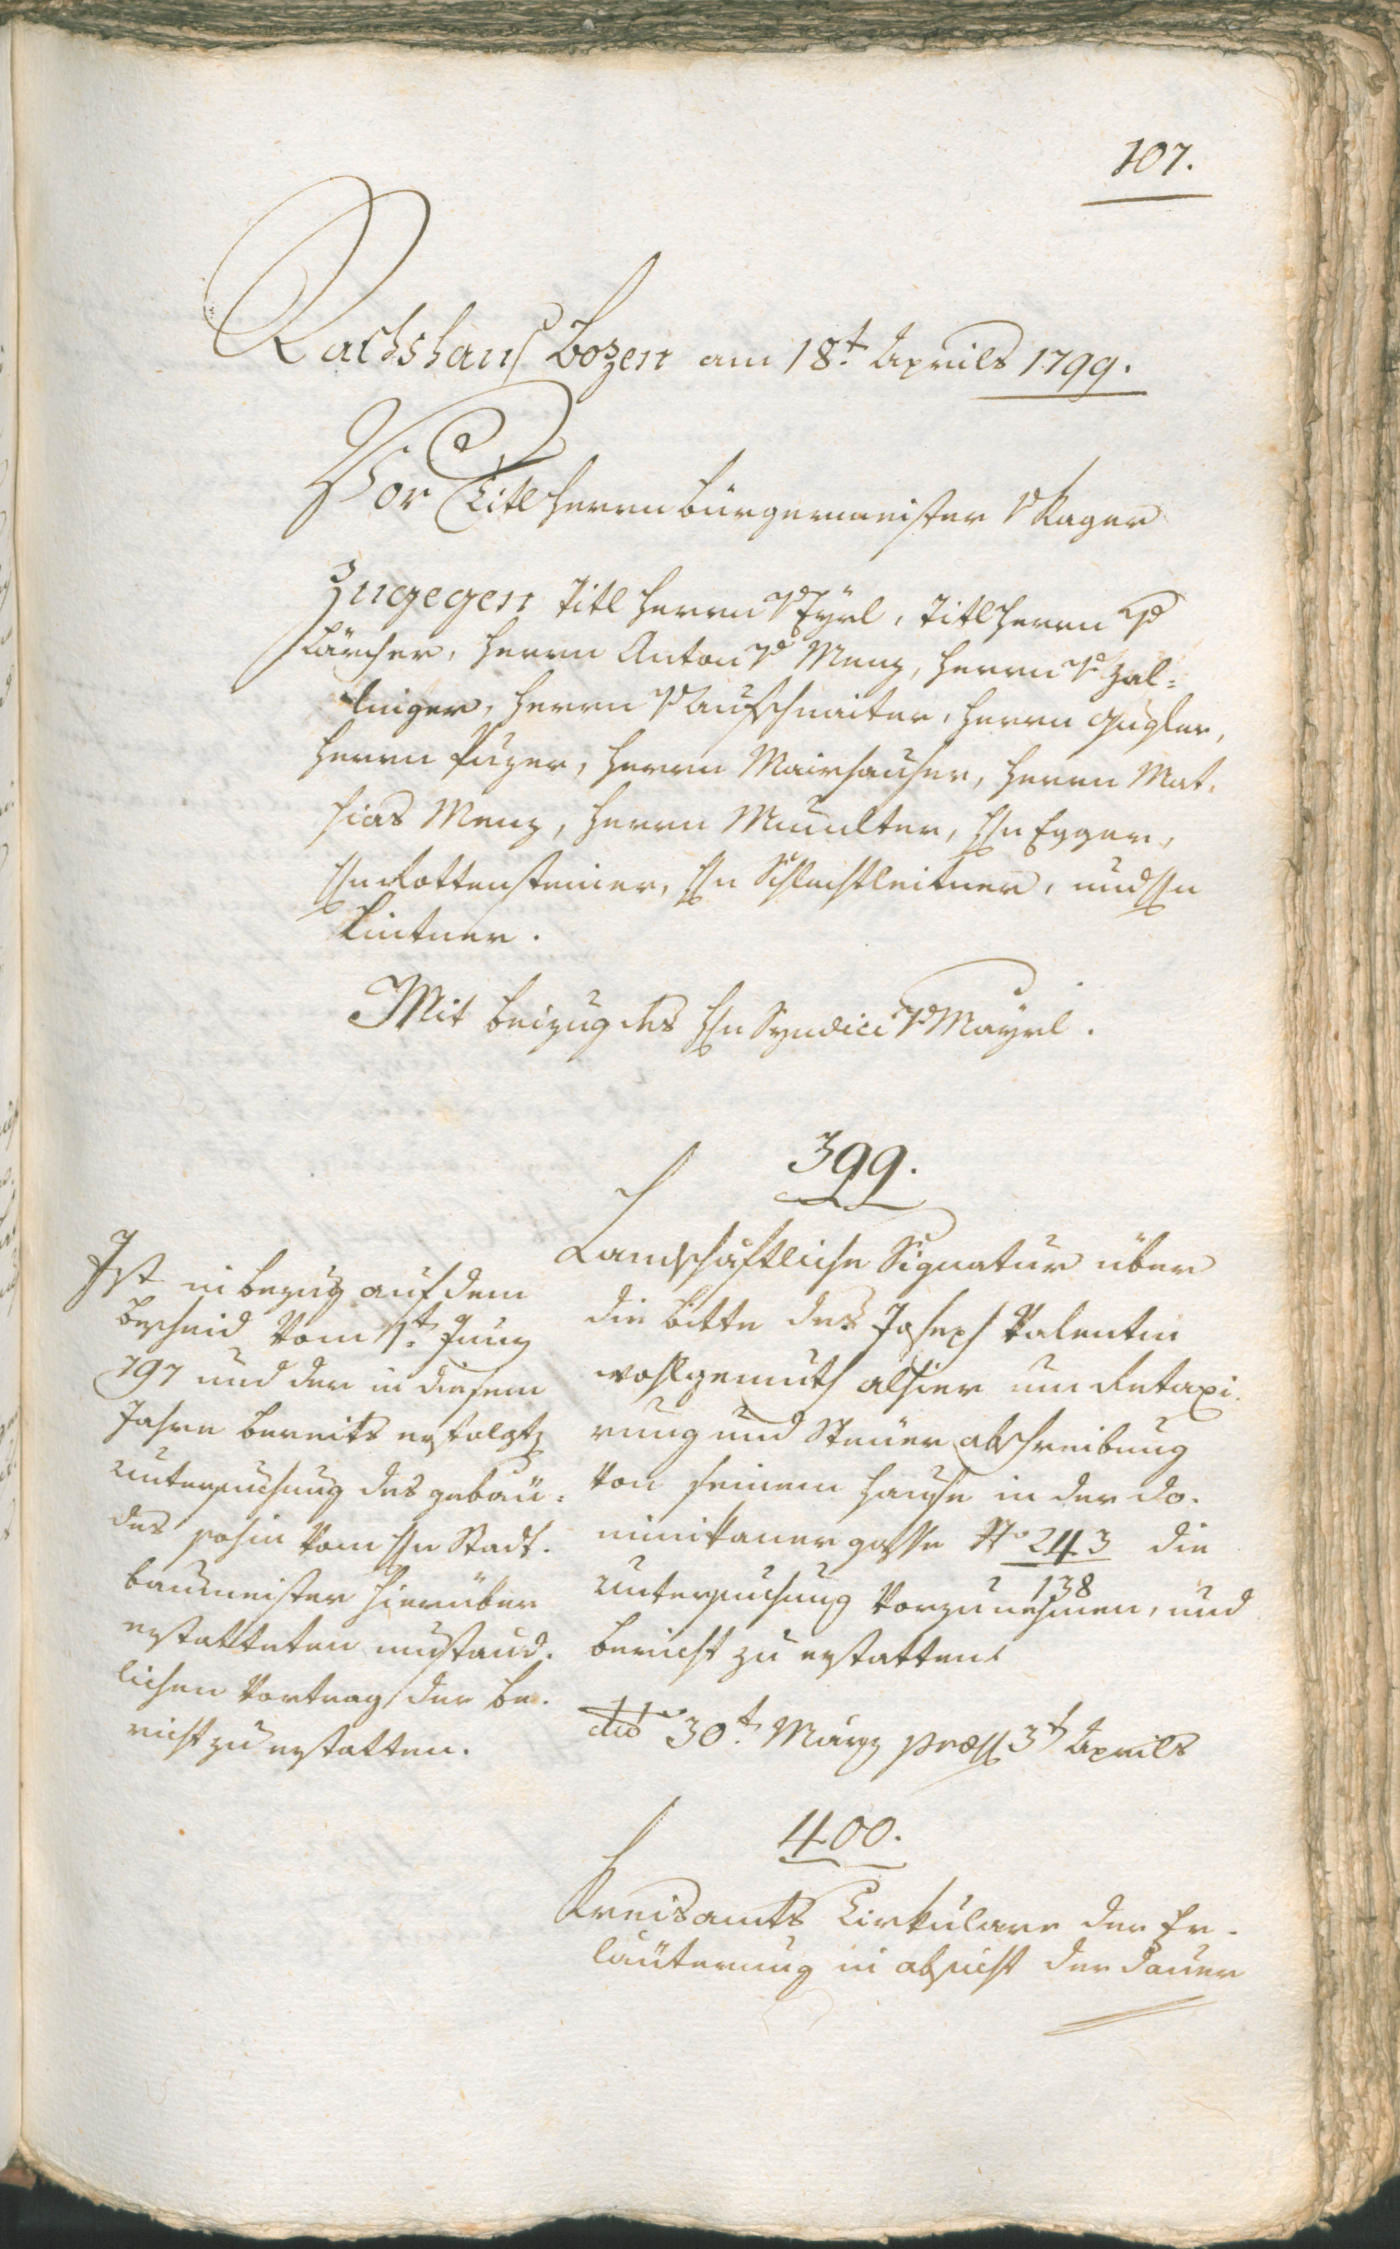 107.
Rathshauß Bozen am 18t. Aprils 1799.
Vor Titl Herrn Bürgermeister v. Kager
Zugegen Titl Herrn v. Eyrl, Titl Herrn v.
Lärcher, Herrn Anton v. Menz, Herrn v. Zal-
linger, Herrn v. Aufschnaiter, Herrn Gugler,
Herrn Puzer, Herrn Mairhauser, Herrn Mat-
hias Menz, Herrn Mumlter, Hrn Egger,
Hrn Rottensteiner, Hrn Schlechtleitner, und Hrn
Lintner.
Mit Beizug des Hrn Syndici v. Mayrl.
399.
Landschäftliche Signatur über
die Bitte des Joseph Valentin
Wohlgemuth alhier um Retaxi-
rung und Steuer abschreibung
von seinem Hause in der Do-
minikanergasse No 243/138 die
Untersuchung vorzunehmen, und
Bericht zu erstatten.
ddo 30t. März præss 3t Aprils
Ist in bezug auf dem
Bescheid vom 1t. Juny
797 und der in diesem
Jahre bereits erfolgten
Untersuchung des gebäu-
des sohin vom Hrn Stadt-
baumeister hierüber
erstatteten umständ-
lichen Vortrag der Be-
richt zu erstatten.
400.
Kreisamts Cirkulare der Er-
läuterung in absicht der Dauer